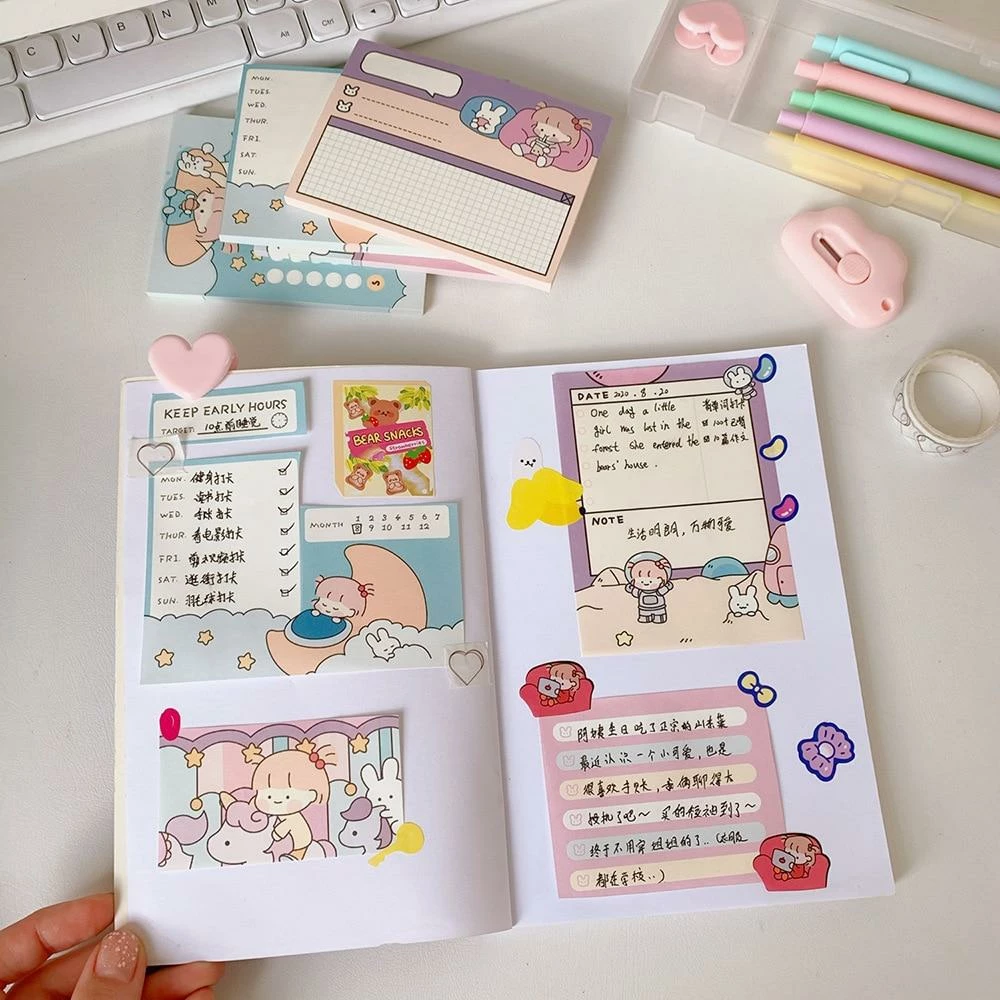 C V B N M
Alt Ctrl
MON.
TUES.
WED.
THUR.
FRI.
SAT.
SUN.
S
KEEP EARLY HOURS
TARGET: 10点前睡觉
MON. 健身打卡
TUES. 读书打卡
WED. 打卡
THUR. 看电影打卡
FRI. 剪视频打卡
SAT. 逛街打卡
SUN. 羽毛球打卡
BEAR SNACKS
Strawberries
MONTH 1 2 3 4 5 6 7
8 9 10 11 12
DATE 2020.8.20
One day a little
girl was lost in the
forest she entered the
bears' house.
背单词打卡
100个已背
10篇作文
NOTE
生活明朗，万物可爱
阿姨生日吃了正宗的山东菜
最近认识一个小可爱，也是
很喜欢手账，俩聊得太
投机了吧~ 买的短袖到了~
终于不用穿姐姐的了..(衣服
都在学校..)